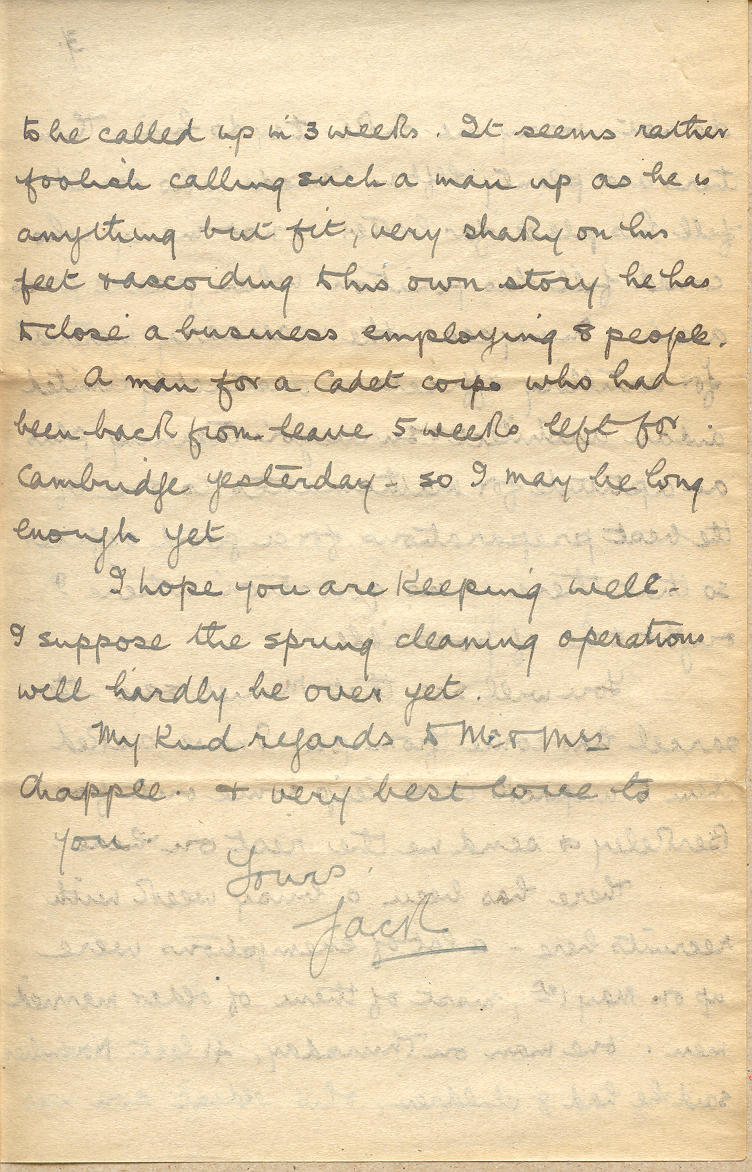 to be called up in 3 weeks. It seems rather
foolish calling such a man up as he is
anything but fit, very shaky on his
feet & according to his own story he has
to close a business employing 8 people.
A man for a Cadet corps who had
been back from leave 5 weeks left for
Cambridge yesterday - so I may be long
enough yet
I hope you are keeping well -
I suppose the spring cleaning operations
will hardly be over yet.
My kind regards to Mr & Mrs
Chapple. & very best love to
you.
Yours,
Jack